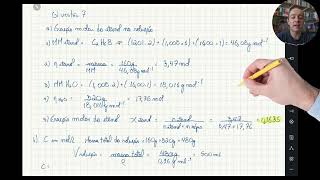 Questão 7
a) Fração molar do etanol na solução
MM etanol = C₂H₆O = (12,01.2) + (1,008.6) + (16,00.1) = 46,08 g mol⁻¹
n etanol = massa/MM = 160g/46,08 g mol⁻¹ = 3,47 mol
MM H₂O = (1,008.2) + (16,00.1) = 18,016 g mol⁻¹
n H₂O = 320g/18,016 g mol⁻¹ = 17,76 mol
Fração molar do etanol X etanol = n etanol/n etanol + n água = 3,47/3,47+17,76 = 0,1635
b) C em mol/L Massa total da solução = 160g + 320g = 480g
V solução = massa total/ρ = 480g/0,96 g mL⁻¹ = 500 mL
C =